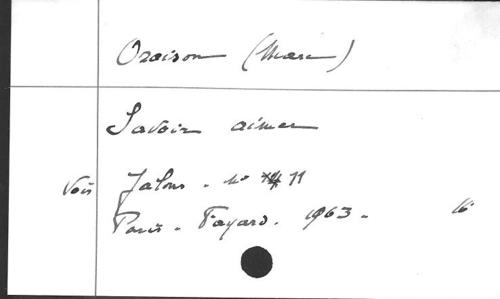 Oraison (Marc)
Savoir aimer
Voir Jalons - N° 11
Paris - Fayard. 1963 - 16°